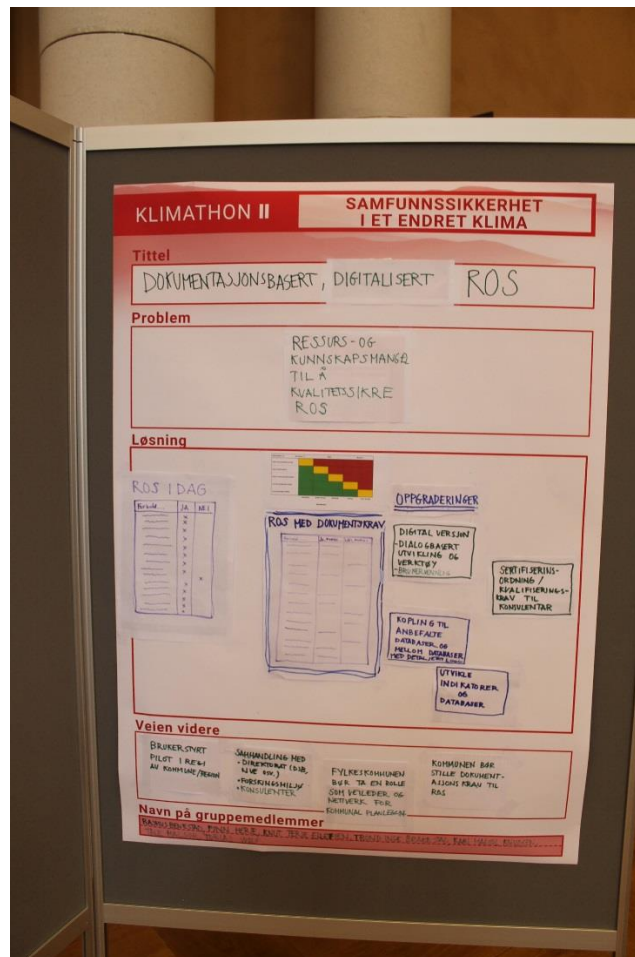 KLIMATHON II
SAMFUNNSSIKKERHET
I ET ENDRET KLIMA
Tittel
DOKUMENTASJONSBASERT, DIGITALISERT ROS
Problem
RESSURS-OG
KUNNSKAPSMANGEL
TIL Å
KVALITETSSIKRE
ROS
Løsning
ROS I DAG
Forhold JA NEI
ROS MED DOKUMENTKRAV
OPPGRADERINGER
DIGITAL VERSJON
-DIALOGBASERT
UTVIKLING OG
VERKTØY
-BRUKERVENNLIG
SERTIFISERINGS-
ORDNING /
KVALIFISERINGS-
KRAV TIL
KONSULENTAR
KOPLING TIL
ANBEFALTE
DATABASER OG
MELLOM DATABASER
UTVIKLE
INDIKATORER
OG
DATABASER
Veien videre
BRUKERSTYRT
PILOT I REGI
AV KOMMUNE/REGION
SAMHANDLING MED
• DIREKTORAT (DSB,
NVE OSV.)
• FORSKINGSMILJØ
• KONSULENTER
FYLKESKOMMUNEN
BØR TA EN ROLLE
SOM VEILEDER OG
NETTVERK FOR
KOMMUNAL PLANLEGGING
KOMMUNEN BØR
STILLE DOKUMENT-
ASJONS KRAV TIL
ROS
Navn på gruppemedlemmer